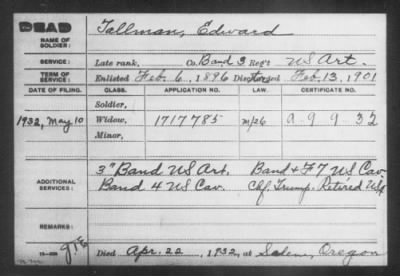 DEAD
NAME OF SOLDIER: Tallman, Edward
SERVICE: Late rank, Co. Band 3 Reg't US Art.
TERM OF SERVICE: Enlisted Feb. 6, 1896 Discharged Feb. 13, 1901
DATE OF FILING. CLASS. APPLICATION NO. LAW. CERTIFICATE NO.
Soldier,
1932, May 10 Widow, 1717785 m/26 A 9 9 32
Minor,
ADDITIONAL SERVICES: 3" Band US Art. Band + F 7 US Cav
Band 4 US Cav. Chf. Trump. Retired USA
REMARKS:
Died Apr. 22, 1932, at Salem, Oregon